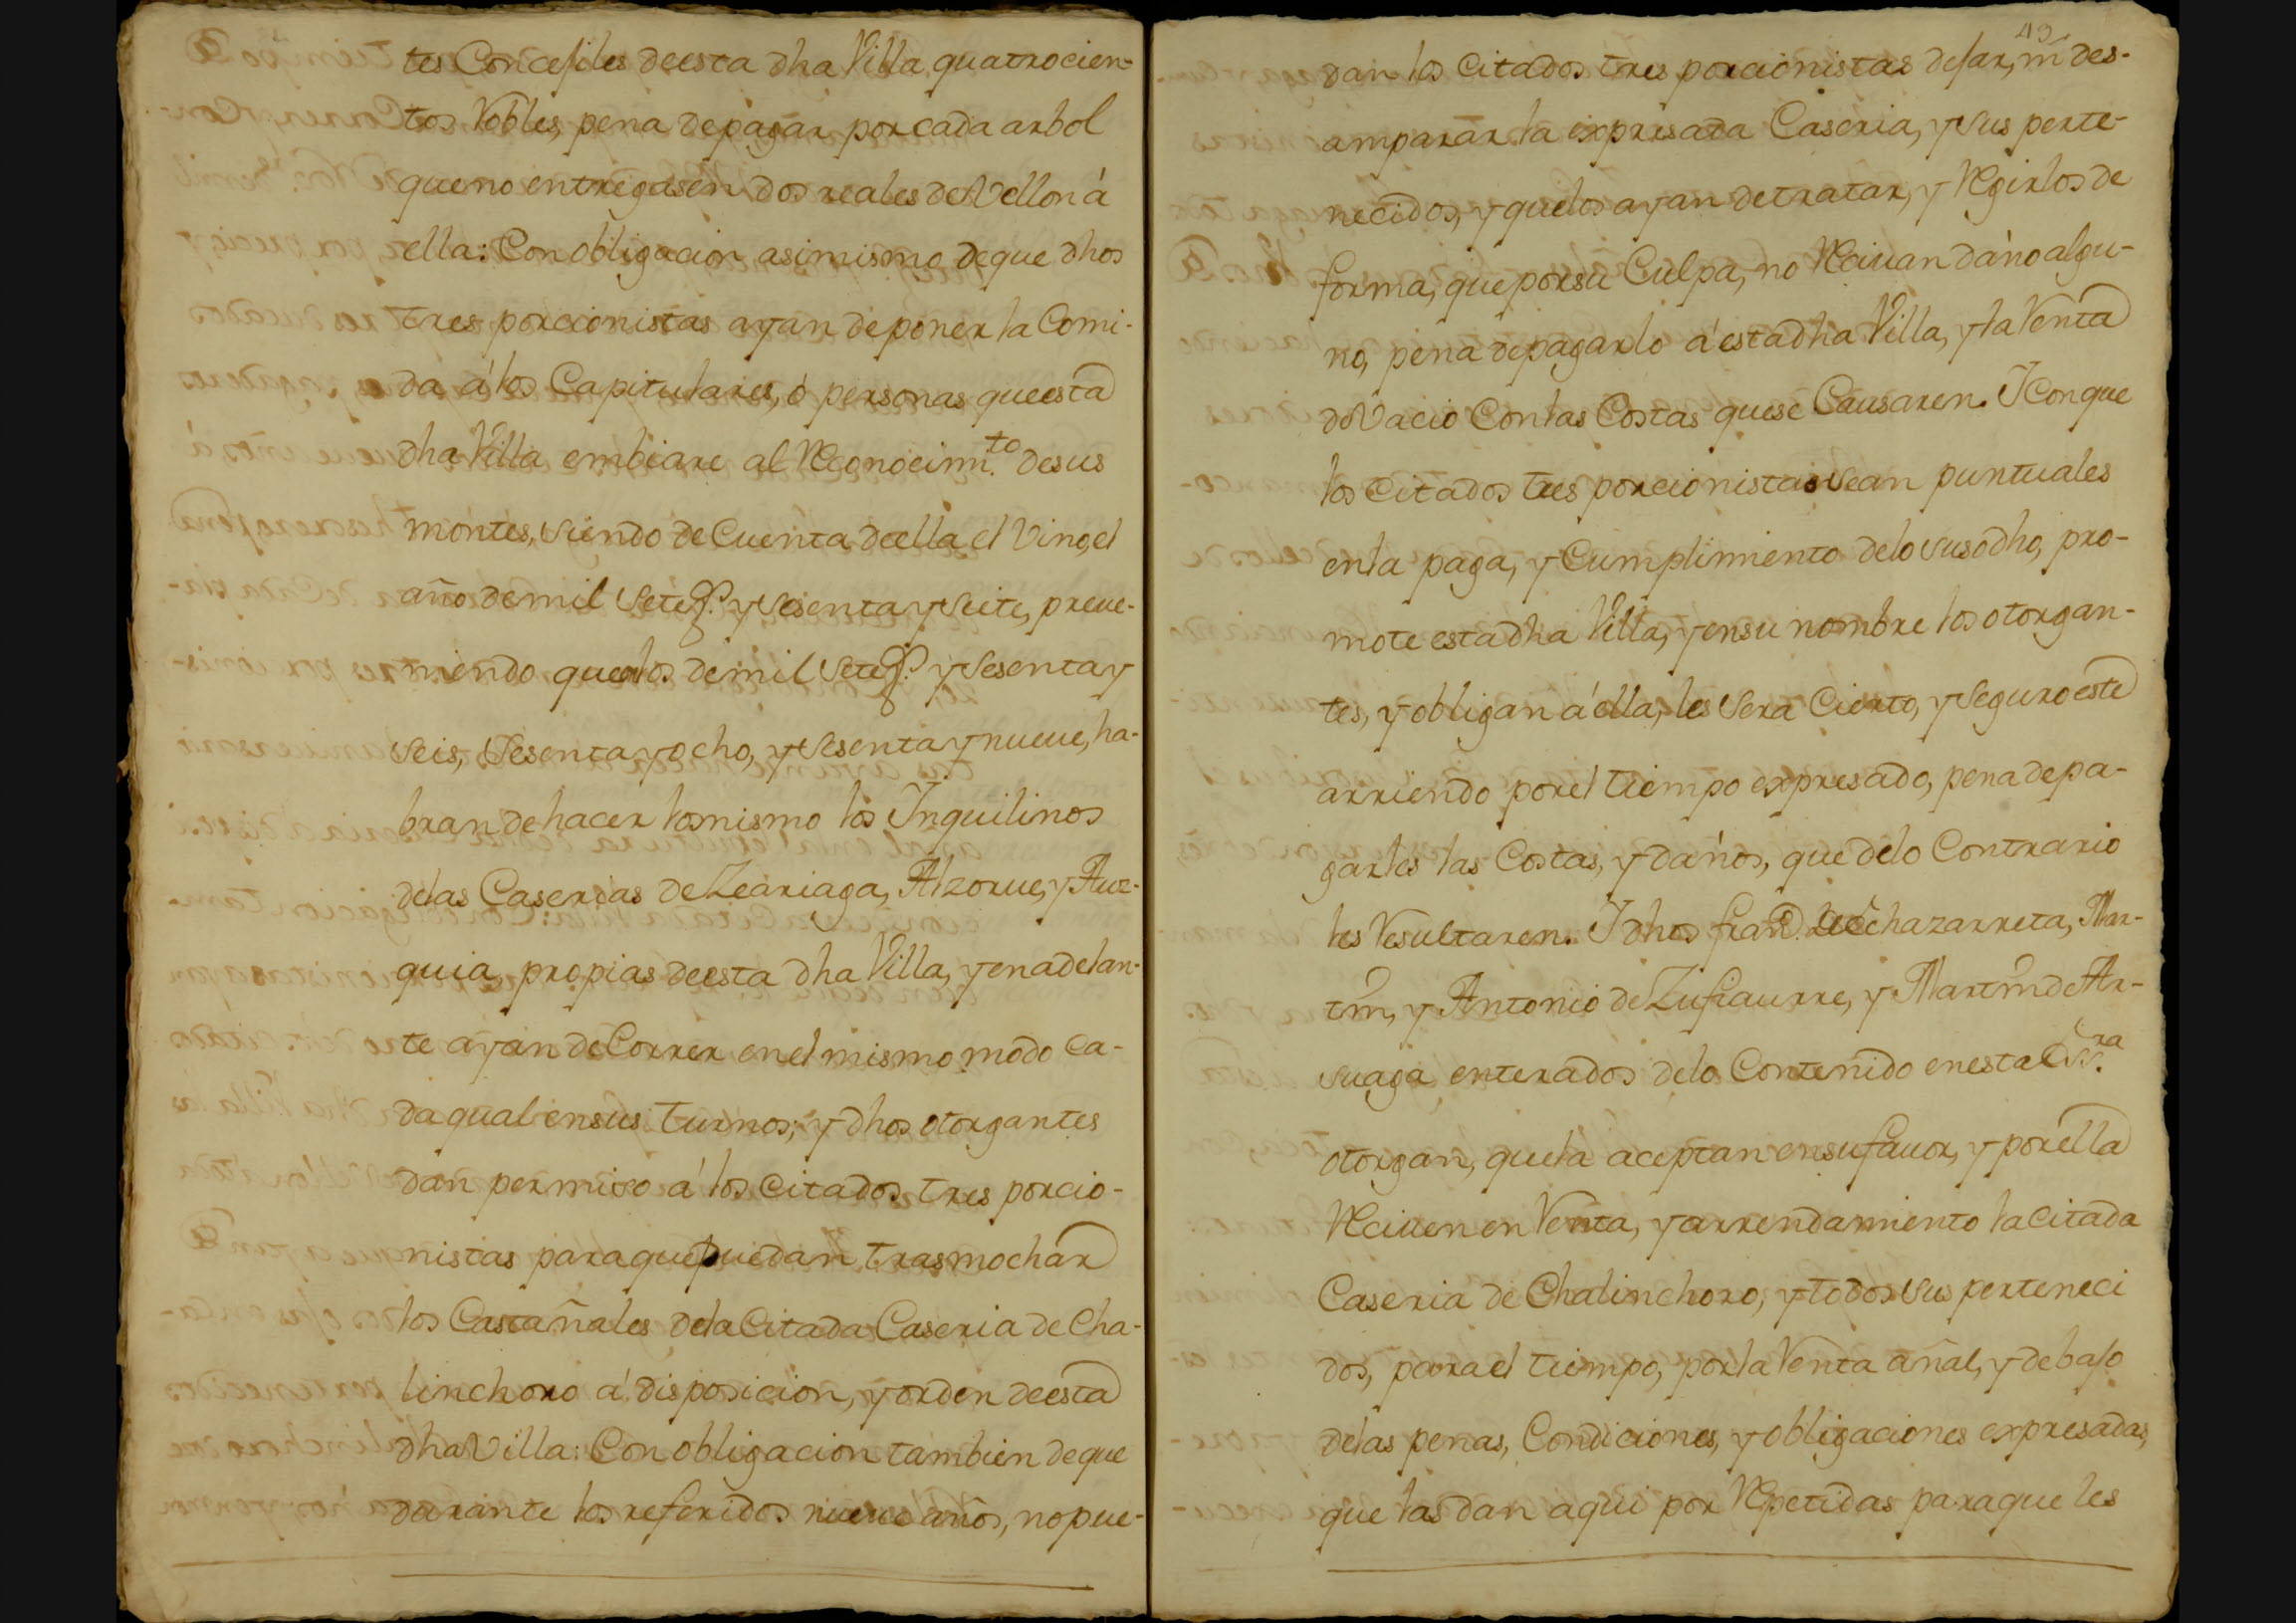 tes Concejiles de esta dha Villa quatrocien-
tos Robles, pena de pagar por cada arbol
que no entregasen dos reales de Vellon á
ella: Con obligacion asimismo de que dhos
tres porcionistas ayan de poner la Comi-
da á los Capitulares, ó personas que esta
dha Villa embiare al Reconocim.to de sus
montes, siendo de Cuenta de ella el Vino, el
año de mil Setez.s y sesenta y Seite, preve-
niendo que los de mil Setez.s y Sesenta y
seis, Sesenta y ocho, y sesenta y nueve, ha-
bran de hacer lo mismo los Inquilinos
de las Caserias de Leariaga, Alzorue, y Auz-
quia, propias de esta dha Villa, y en adelan-
te ayan de Correr en el mismo modo ca-
da qual en sus turnos; y dhos otorgantes
dan permiso á los citados tres porcio-
nistas para que puedan trasmochar
los Castañales de la Citada Caseria de Cha-
linchoro á disposicion, y orden de esta
dha Villa: Con obligacion tambien de que
durante los referidos nueve años, no pue-
49
dan los citados tres porcionistas dejar, ni des-
amparar la expresada Caseria, y sus perte-
necidos, y que los ayan de tratar, y Regirlos de
forma, que por su Culpa, no Recivan daño algu-
no, pena de pagarlo á esta dha Villa, y la Renta
de Vacio Con las Costas que se Causaren. Y Con que
los citados tres porcionistas sean puntuales
en la paga, y Cumplimiento de lo susodho, pro-
mote esta dha Villa, y en su nombre los otorgan-
tes, y obligan á ella, les sera Cierto, y Seguro este
arriendo por el tiempo expresado, pena de pa-
garles las Costas, y daños, que de lo Contrario
les Resultaren. Y dhos fran.co de Echazarreta, Mar-
tin, y Antonio de Zufiaurre, y Martin de Ar-
suaga enterados de lo Contenido en esta Ess.ra
otorgan, que la aceptan en su favor, y por ella
Reciven en Renta, y arrendamiento la citada
Caseria de Chalinchoro, y todos sus perteneci
dos, para el tiempo, por la Renta añal, y debajo
de las penas, Condiciones, y obligaciones expresadas,
que las dan aqui por Repetidas para que les